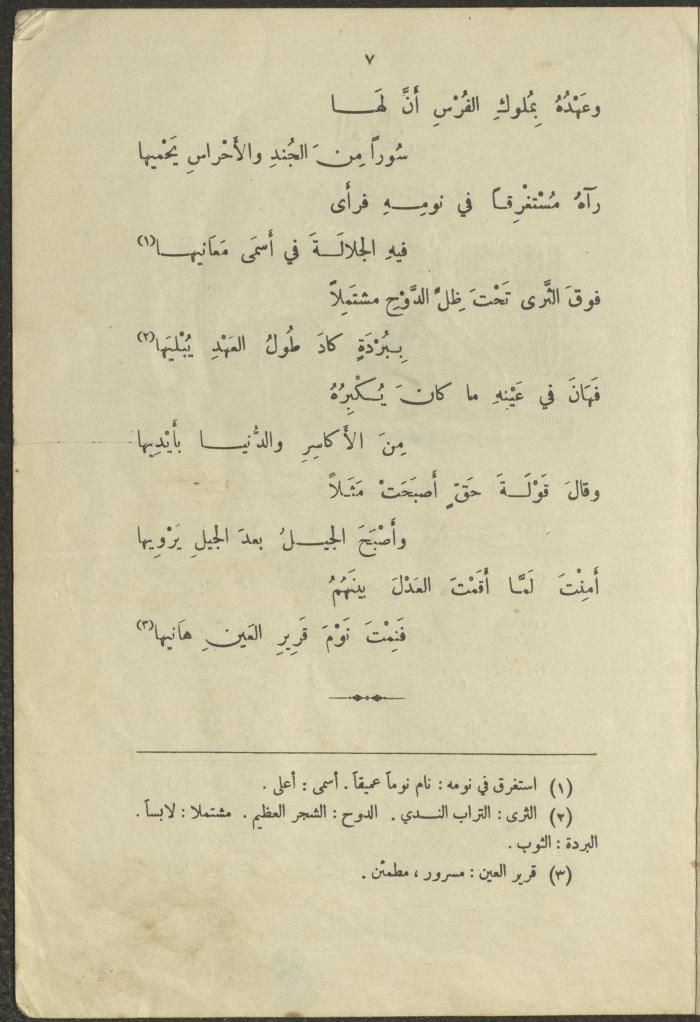 ٧
وعَهْدُهُ بِمُلوكِ الفُرْسِ أَنَّ لَهَـــا
سُوراً مِن َ الجُندِ والأَحْراسِ يَحْميها
رآهُ مُسْتغْرِقـاً في نومِــهِ فرأى
فيهِ الجلالَــةَ في أَسمَى مَعَانيهـــا(١)
فوقَ الثَّرى تَحْتَ ظِلِّ الدَّوْحِ مشتَمِلاً
بِـبُرْدَةٍ كادَ طُولُ العَهْدِ يُبْليَها(٢)
فَهَانَ في عَيْنِهِ ما كان َ يُــكْبِرُهُ
مِنَ الأَكاسِرِ والدُّنيـــا بأَيْدِيها
وقالَ قَوْلَــةَ حَقٍّ أَصبَحَتْ مَثَـلاً
وأَصْبَحَ الجيــلُ بعدَ الجيلِ يَرْوِيها
أَمِنْتَ لَمَّا أَقَمْتَ العَدْلَ بينَهُمُ
فَنِمْتَ نَوْمَ قَرِيرِ العَينِ هَانيها(٣)
(١) استغرق في نومه : نام نوماً عميقاً . أسمى : أعلى .
(٢) الثرى : التراب النــدي . الدوح : الشجر العظيم . مشتملا : لابساً .
البردة : الثوب .
(٣) قرير العين : مسرور ، مطمئن .